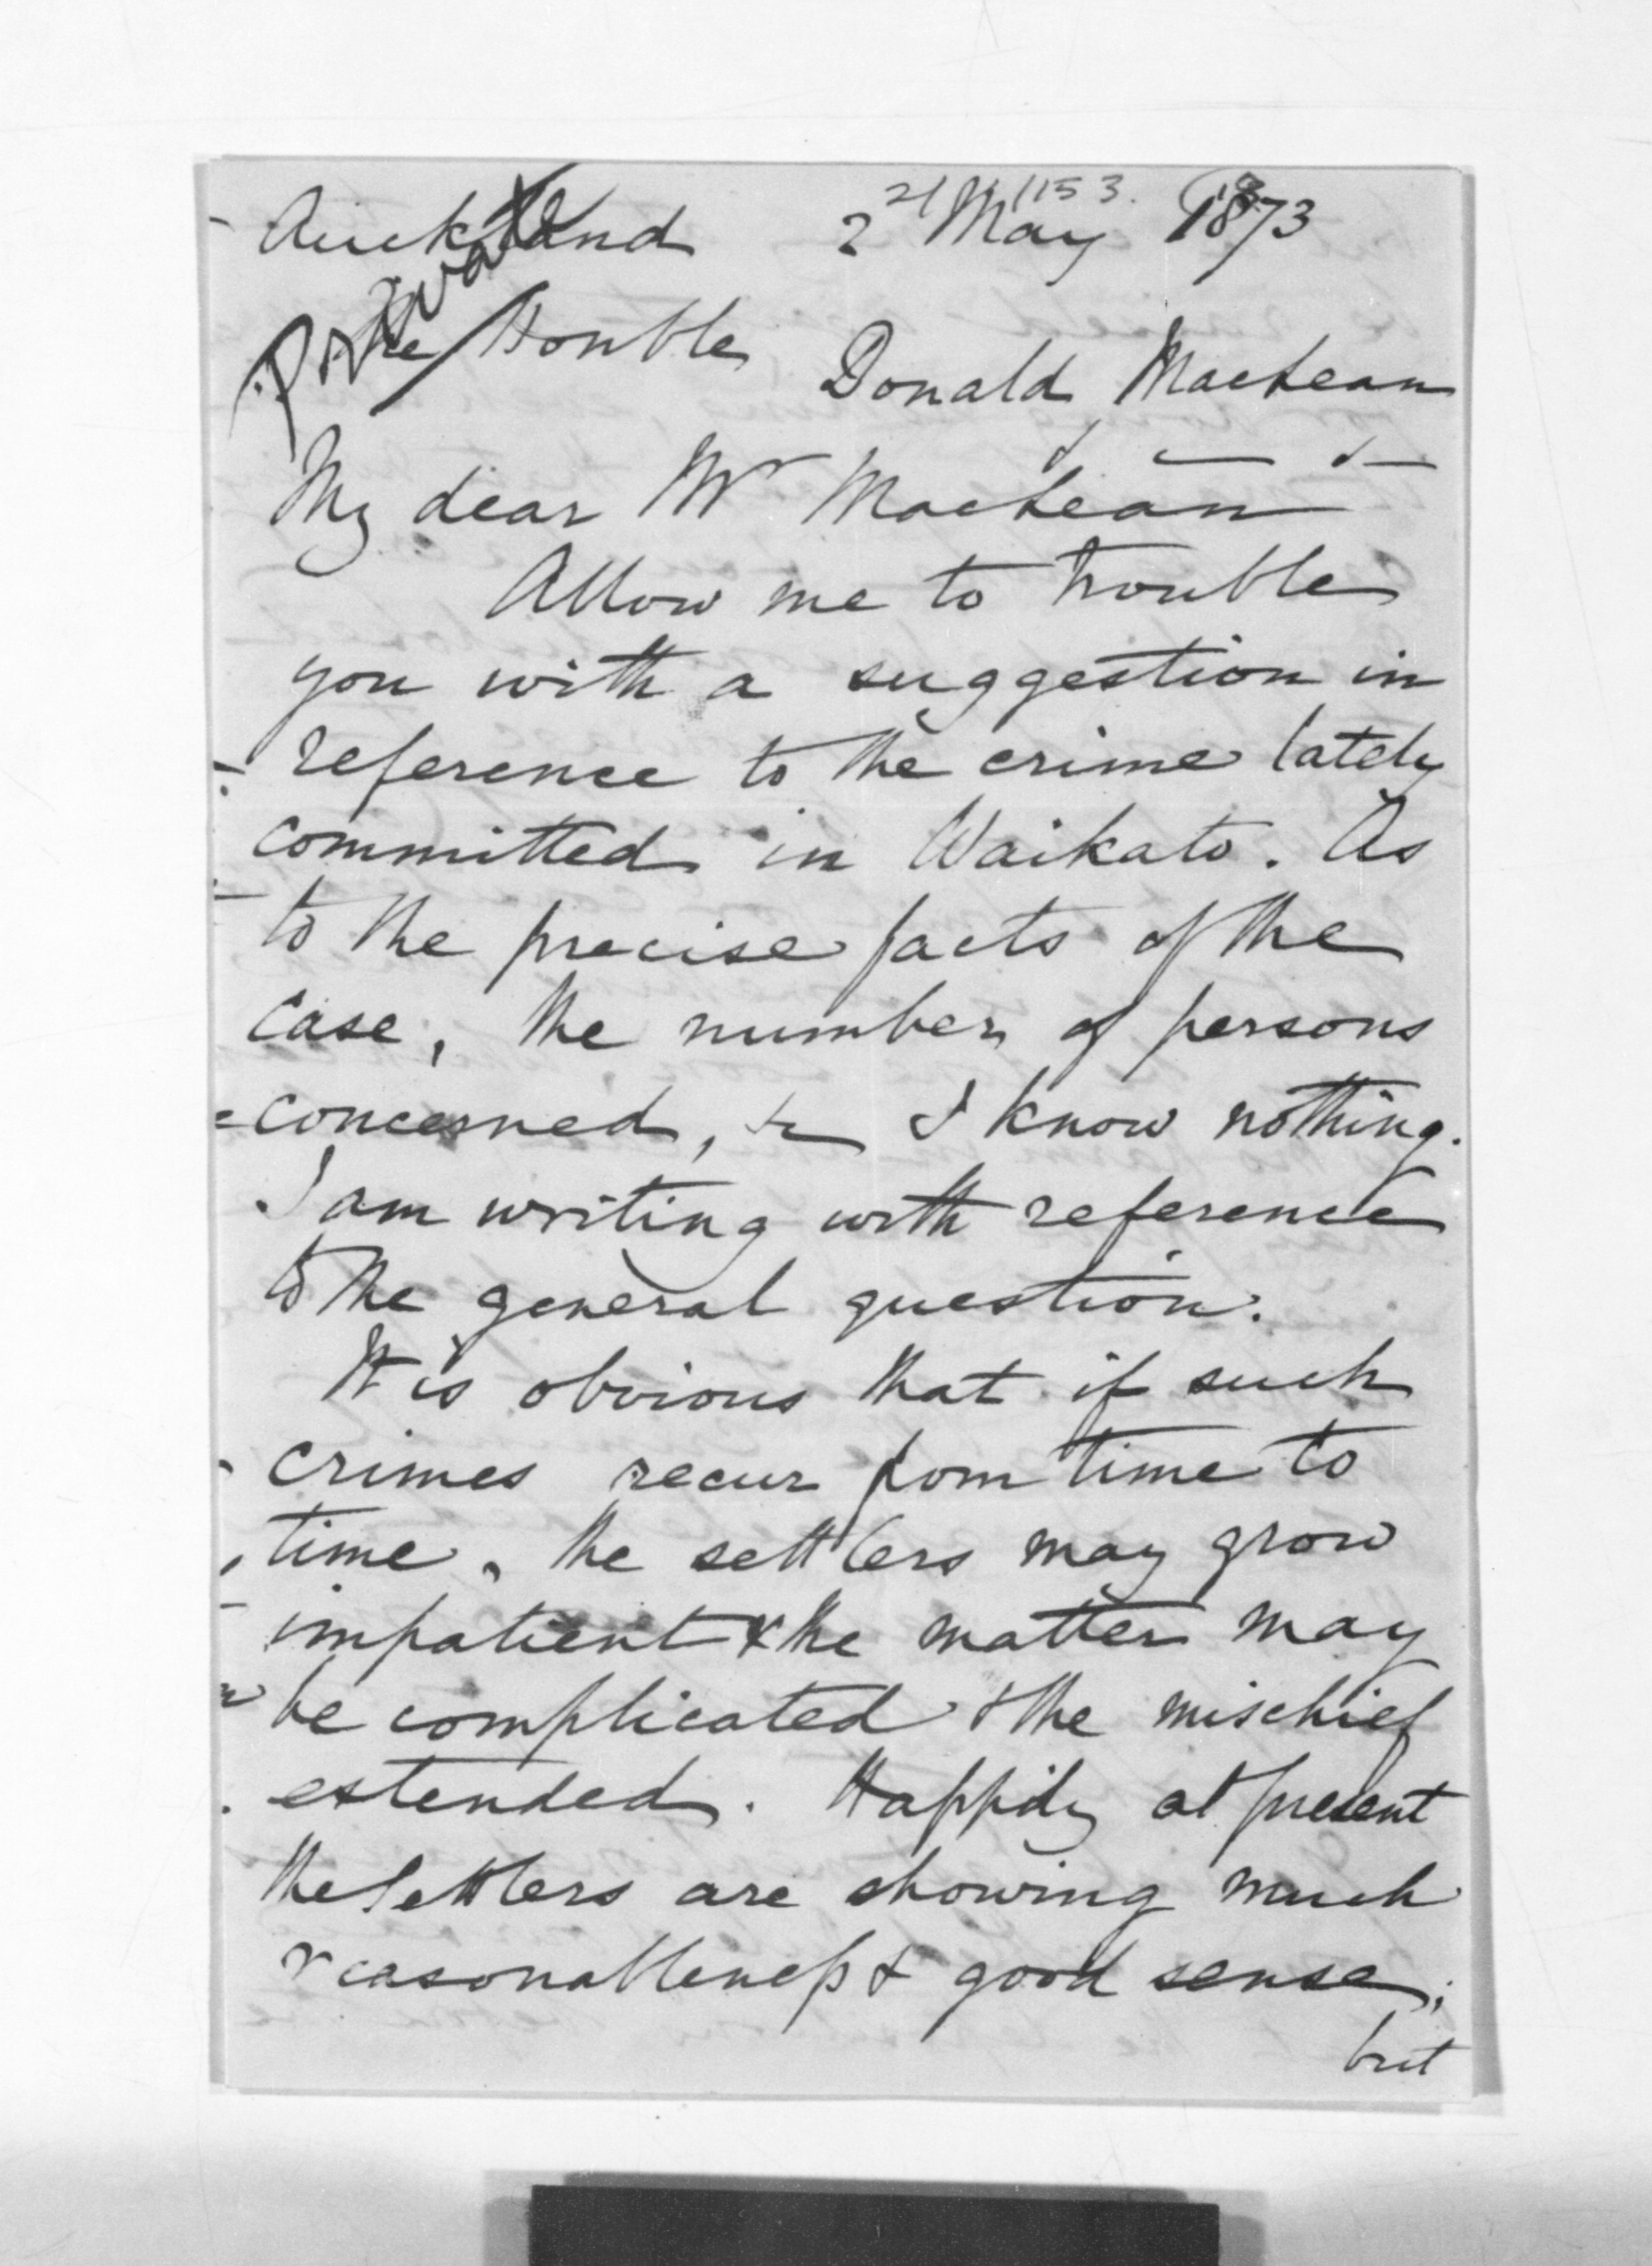 Auckland 2 May 1873
Private
The Honble
Donald MacLean
& — & —
My dear Mr MacLean
Allow me to trouble
you with a suggestion in
reference to the crime lately
committed in Waikato. As
to the precise facts of the
case, the number of persons
concerned, &c I know nothing.
I am writing with reference
to the general question.
It is obvious that if such
crimes recur from time to
time, the settlers may grow
impatient & the matter may
be complicated & the mischief
extended. Happily at present
the settlers are showing much
reasonableness & good sense;
but